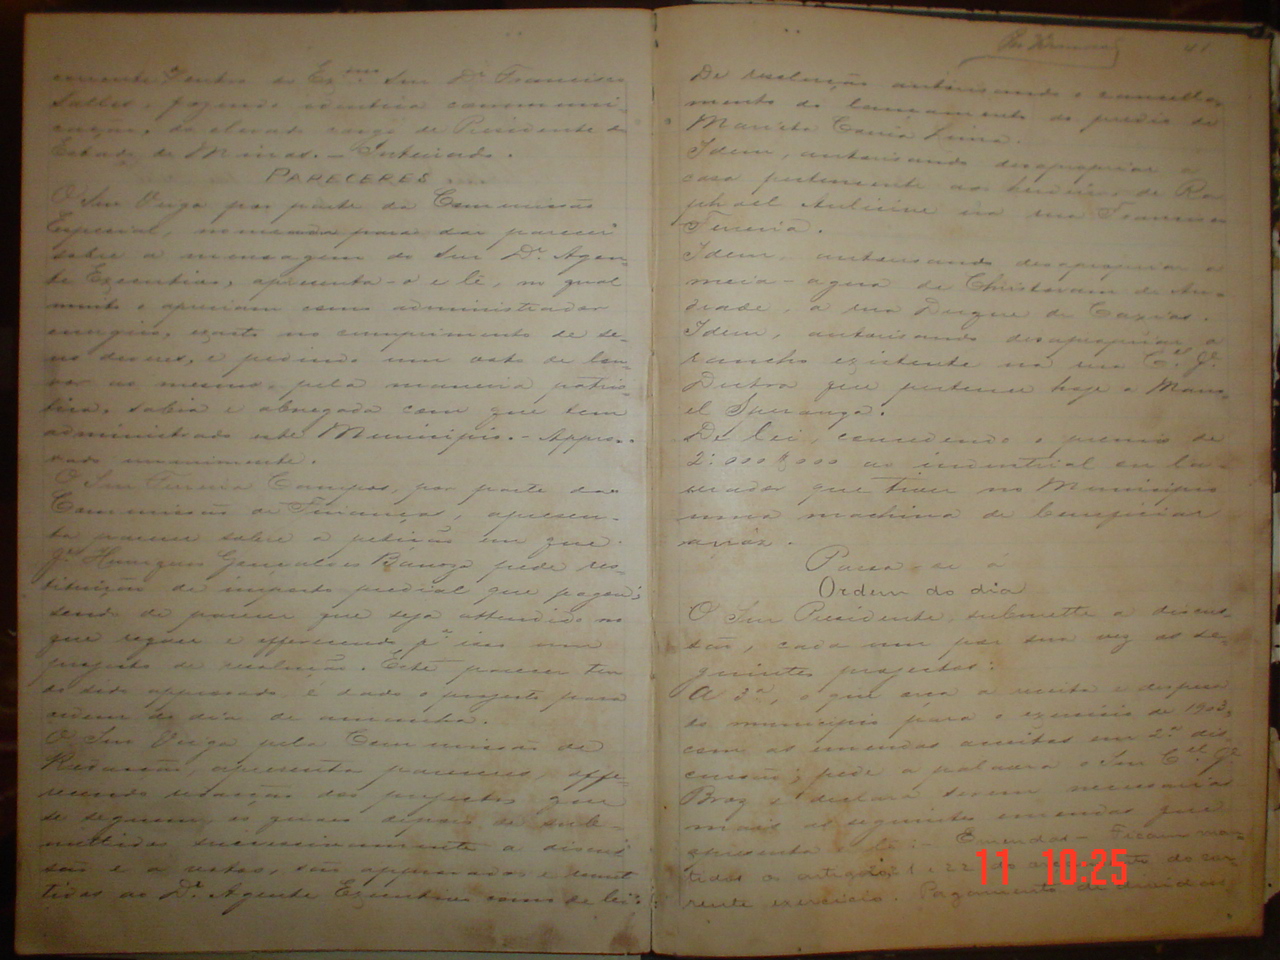 corrente Mentos do Ex.mo Snr. Dr. Francisco
Salles, fazendo identica communi-
cação, do elevado cargo de Presidente do
Estado de Minas. - Inteirado.
PARECERES
O Snr Veiga por parte da Commissão
Especial, nomeada para dar parecer
sobre a mensagem do Snr Dr. Agen-
te Executivo, apresenta-o e lê, no qual
muito o apreciam como administrador
energico, exacto no cumprimento de se-
us deveres, e pedindo um voto de lou-
vor ao mesmo, pela maneira patrio-
tica, sabia e abnegada com que tem
administrado este Municipio. - Appro-
vado unanimente.
O Snr Ferreira Campos, por parte da
Commissão de Finanças, apresen-
ta parecer sobre a petição em que
Je. Henriques Gonçalves Barroza pede res-
tituição de imposto predial que pagou;
sendo de parecer que seja attendido no
que requer e offerecendo pa. isso um
projecto de resolução. Este parecer ten-
do sido approvado é dado o projecto para
ordem do dia de amanhã.
O Snr Veiga pela Commissão de
Redacção, apresenta pareceres, offe-
recendo redacção dos projectos que
se seguem, os quaes depois de sub-
mettidos successivamente a discus-
são e a votos, são approvados e remet-
tidos ao Dr. Agente Executivo como de lei:
41
De resolução autorisando o cancella-
mento do lançamento do predio de
Marieta Lima.
Idem, autorisando desapropriar a
casa pertencente aos herdeiros de Ra-
phael na rua Francisco
Ferreira.
Idem, autorisando desapropriar a
meia-agua de Christovam de An-
drade, a rua Duque de Caxias.
Idem, autorisando desapropriar o
rancho existente na rua Cel. Je.
Dutra que pertence hoje a Mano-
el Speranza.
De lei, concedendo o premio de
2:000$000 ao industrial ou la-
vrador que tiver no Municipio
uma machina de beneficiar
arroz.
Passa-se á
Ordem do dia
O Snr Presidente, submette a discus-
são, cada um por sua vez os se-
guintes projectos:
A 3ª, o que orça a receita e despeza
do municipio para o exercicio de 1903,
com as emendas aceitas em 2ª dis-
cussão; pede a palavra o Snr Cel. Je.
Braz e declara serem necessarias
mais as seguintes emendas que
apresenta e lê: - Emendas - Ficam man-
tidos os artigos 21 e 22 do do cor-
rente exercicio. Pagamento de dividas
11 10:25